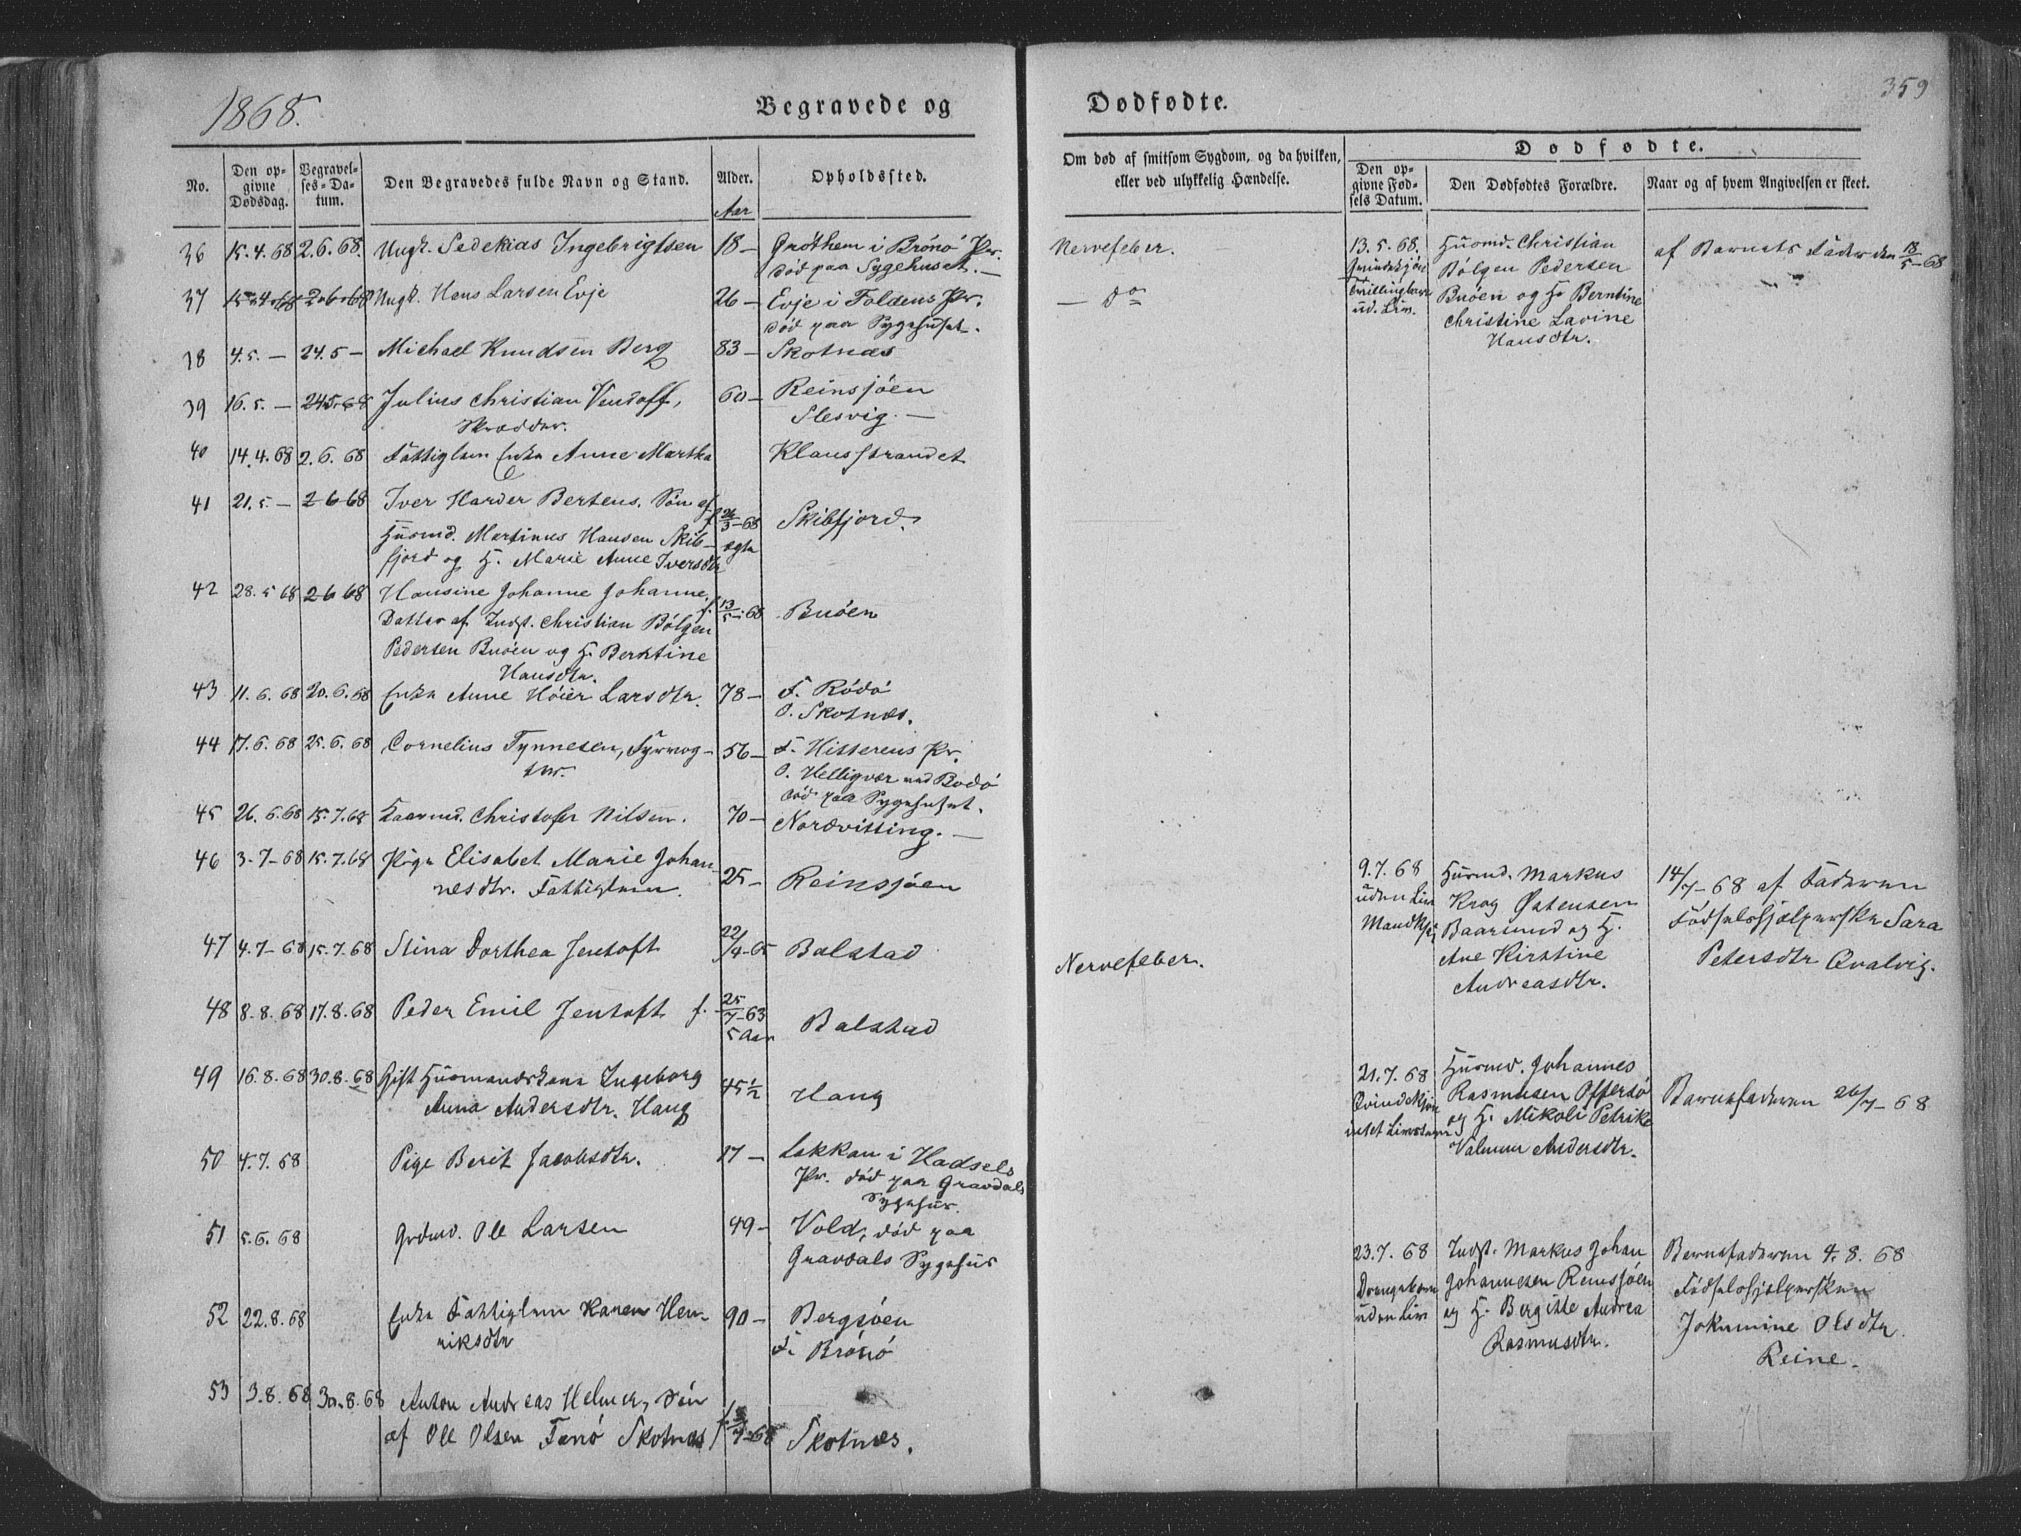 1868.
Begravede og
Dødfødte.
359
No.
Den op-
givne
Dødsdag.
Begravel-
ses-Da-
tum.
Den Begravedes fulde Navn og Stand.
Alder.
Aar
Opholdssted.
Om død af smitsom Sygdom, og da hvilken,
eller ved ulykkelig Hændelse.
Dødfødte.
Den op-
givne Fød-
sels Datum.
Den Dødfødtes Forældre.
Naar og af hvem Angivelsen er skeet.
36 15.4.68 2.6.68. Ungk. Sedekias Ingebrigtsen 18 – Grøthem i Brønø Pr.
død paa Sygehuset. –
Nervefeber.
37 15.4.68 2.6.68 Ungk. Hans Larsen Evje 26 – Evje i Foldens Pr.
død paa Sygehuset.
– do
38 4.5. – 24.5 – Michael Knudsen Berg 83 – Skotnæs
39 16.5. – 24.5.68 Julius Christian Vendoff, 60 – Reinsjøen
Skrædder. Slesvig. –
40 14.4.68 2.6.68 Fattiglem Enke Anne Martha Klausstrandet
41 21.5. – 2 6 68 Iver Harder Bertens. Søn af
Huusmd. Martinus Hansen Skib-
fjord og H. Marie Anne Iversdtr
ægte
Skibfjord.
42 28.5 68 2 6 68 Hansine Johanne Johanne,
Datter af Indst. Christian Bølgen
Pedersen Buøen og H. Berntine
Hansdtr.
f. 13/5-68 Buøen
43 11.6.68 20.6.68 Enke Anne Høier Larsdtr. 78 – F. Rødø
O. Skotnæs.
44 17.6.68 25.6.68 Cornelius Tynnesen, Fyrvog-
ter.
56 – F. Hitterens Pr.
O. Helligvær ved Bodø
død paa Sygehuset.
45 26.6.68 15.7.68 Kaarmd. Christofer Nilsen. 70 – Nordvitting. –
46 3-7-68 15.7.68 Pige Elisabet Marie Johan-
nesdtr. Fattiglem. 25 – Reinsjøen
47 4.7-68 15.7.68 Stina Dorthea Jentoft 22/4-65 Balstad
Nervefeber.
48 8.8.68 17.8.68 Peder Emil Jentoft f. 25/7-63
5 Aar
Balstad
49 16.8.68 30.8.68 Gift Huusmandskone Ingeborg
Anna Andersdtr. Haug 45½ Haug
50 4.7.68 Pige Berit Jacobsdtr. 17 – Løkkan i Hadsels
Pr. død paa Gravdals
Sygehus.
51 5.6.68 Grdmd. Ole Larsen 49 – Vold, død paa
Gravdals Sygehus
52 22.8.68 Enke Fattiglem Karen Hen-
riksdtr 90 – Bergsøen
F. Brønø
53 3.8.68 30.8.68 Anton Andreas Helmer, Søn
af Ole Olsen Fanø Skotnæs
Skotnæs.
13.5.68.
Qvindekjøn
Tvillingbarn
ud. Livs.
Huusmd. Christian
Bølgen Pedersen
Buøen og H. Berntine
Christine Lavine
Hansdtr.
af Barnets Fader den 18/5-68
9.7.68
uden Liv
Mandkjøn
Huusmd. Markus
Krog Østensen
Baarsund og H.
Ane Kirstine
Andreasdtr.
14/7-68 af Faderen
Fødselshjælperske Sara
Petersdtr Qvalvig.
21.7.68
Qvindekjøn
intet Livstegn
Huusmd. Johannes
Rasmusen Offersø
og H. Nikoli Petrike
Valnum Andersdtr.
Barnefaderen 26/7-68
23.7.68
Drengebarn
uden Liv
Indst. Markus Johan
Johannesen Reinsjøen
og H. Bergitte Andrea
Rasmusdtr.
Barnefaderen 4.8.68
Fødselshjælpersken
Jokumine Olsdtr
Reine.